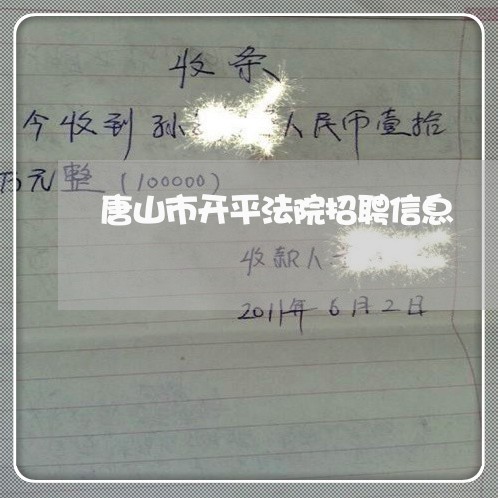 收条
今收到孙 人民币壹拾
万元整(100000)
唐山市开平法院招聘信息
收款人
2011年6月2日